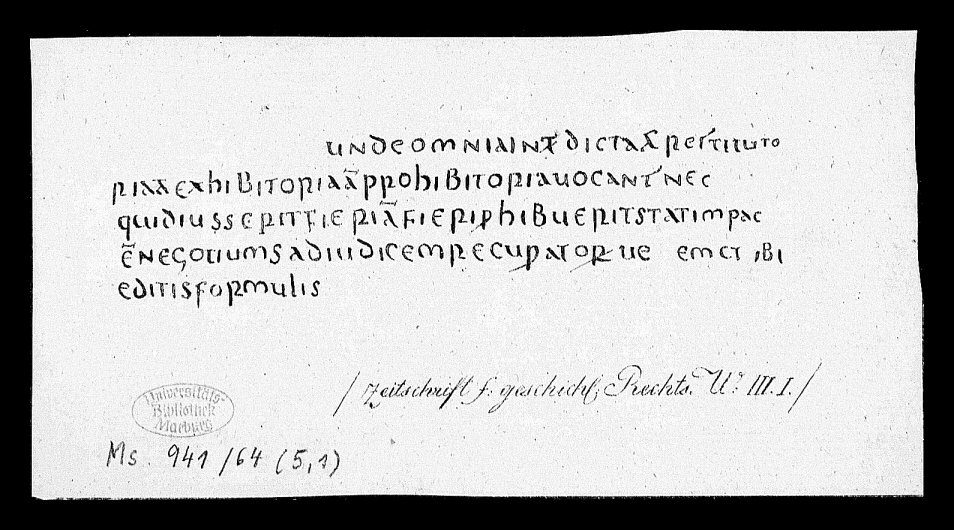 undeomniaintdictaā restituto
riaāexhibitoriaāprohibitoriauocant nec
quidiusserit fieriāfieriphibueritstatimpac
ē negotiumsadiudicemrecuperatorue emct ibi
editisformulis
/ Zeitschrift f. geschichtl. Rechts. W. III. I. /
Universitäts-
Bibliothek
Marburg
Ms. 941/64 (5,1)